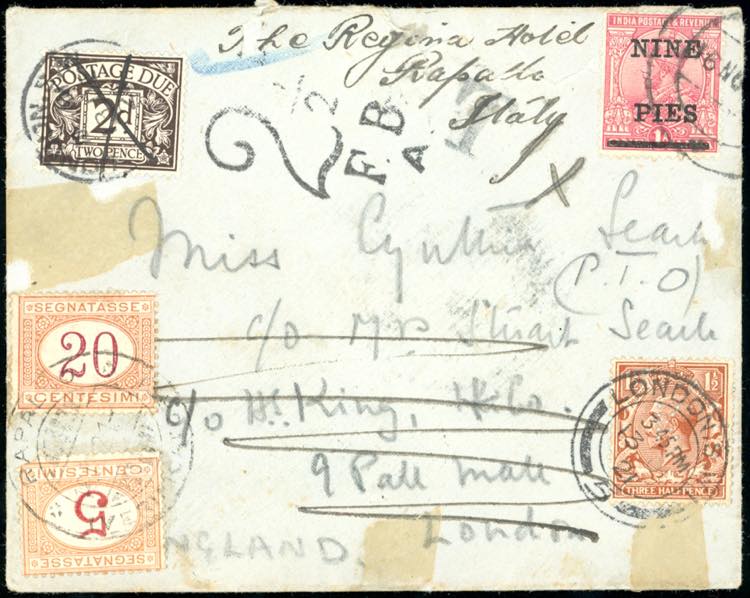 The Regina Hotel
Rapallo
Italy
POSTAGE DUE
2d
TWO PENCE
INDIA POSTAGE & REVENUE
NINE
PIES
1A
2
1/2
F.B
A
T
X
Miss Cynthia Searle
(P.T.O)
c/o Mrs Stuart Searle
c/o H.S. King, & Co.
9 Pall Mall
London
ENGLAND.
SEGNATASSE
20
CENTESIMI
SEGNATASSE
5
CENTESIMI
LONDON S.W
3.45 PM
1½
THREE HALFPENCE